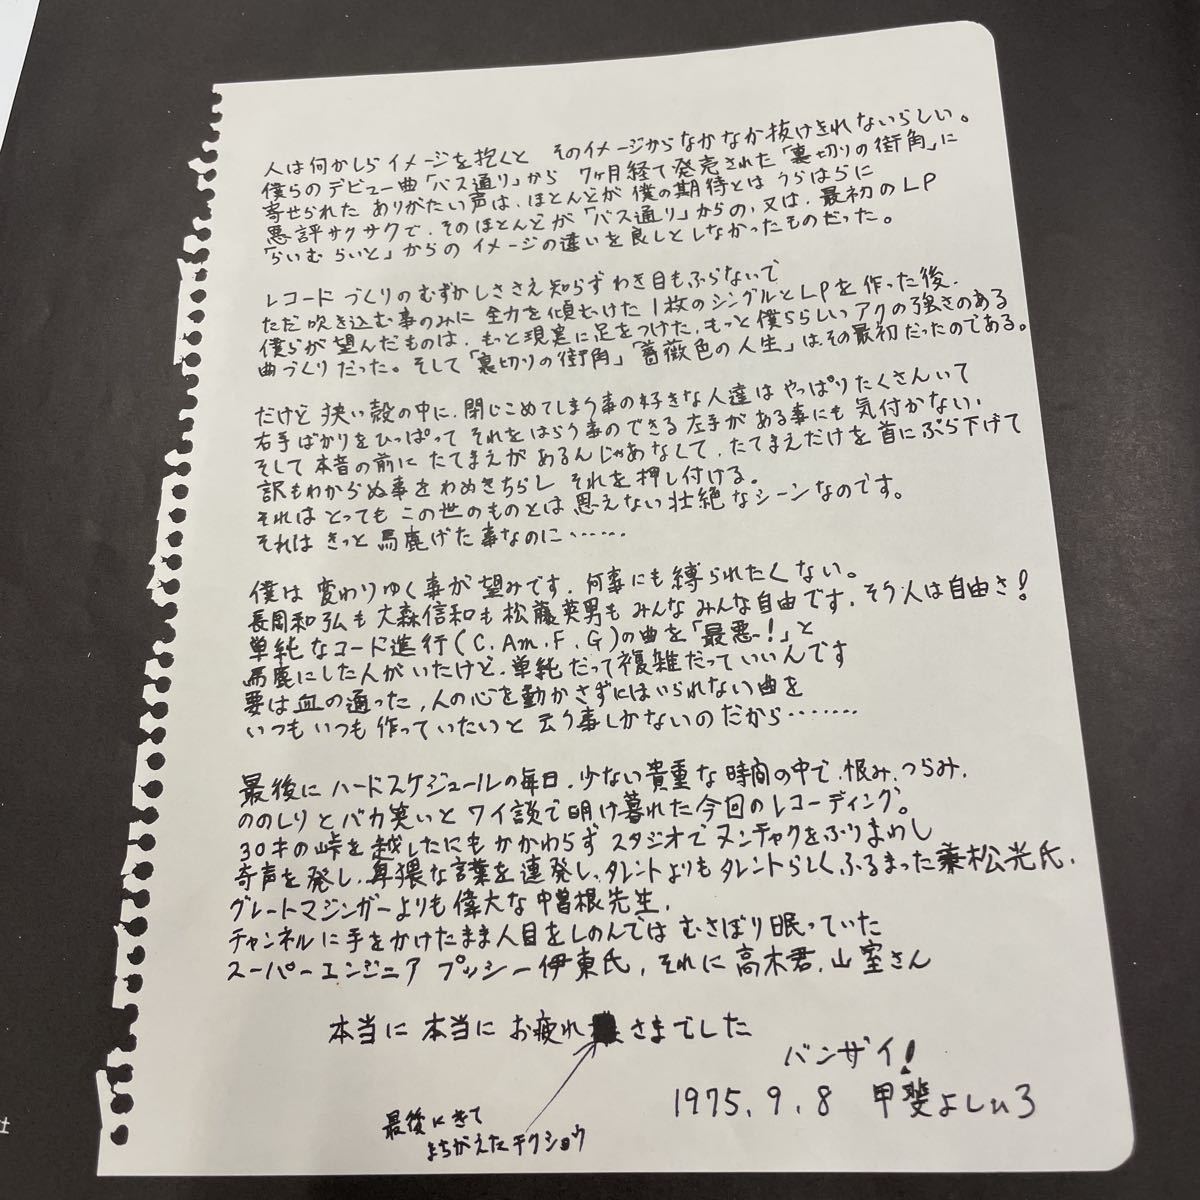 人は何かしらイメージを抱くと そのイメージからなかなか抜けきれないらしい。
僕らのデビュー曲「バス通り」から 7ヶ月経て発売された「裏切りの街角」に
寄せられた ありがたい声は、ほとんどが 僕の期待とは うらはらに
悪評サクサクで、そのほとんどが「バス通り」からの、又は、最初のLP
「らいむ らいと」からの イメージの違いを良しとしなかったものだった。
レコード づくりのむずかしささえ知らず わき目もふらないで
ただ 吹き込む事のみに 全力を傾むけた 1枚のシングルとLPを作った後、
僕らが望んだものは、もっと現実に足をつけた、もっと僕ららしいアクの強さのある
曲づくりだった。そして「裏切りの街角」「薔薇色の人生」は、その最初だったのである。
だけど 狭い殻の中に、閉じこめてしまう事の好きな人達は やっぱりたくさんいて
右手ばかりをひっぱって それをはらう事のできる左手がある事にも 気付かない、
そして本音の前に たてまえが あるんじゃあなくて、たてまえだけを首にぶら下げて
訳もわからぬ事をわめきちらし それを押し付ける。
それは とっても この世のものとは 思えない壮絶なシーンなのです。
それは きっと 馬鹿げた事なのに・・・・・・
僕は 変わりゆく事が望みです、何事にも縛られたくない。
長岡和弘も 大森信和も 松藤英男も みんな みんな自由です、そう人は自由さ！
単純なコード進行(C.Am.F.G)の曲を「最悪ー!」と
馬鹿にした人がいたけど、単純だって複雑だっていいんです
要は血の通った、人の心を動かさずにはいられない曲を
いつも いつも 作っていたいと 云う事しかないのだから・・・・・・・
最後に ハードスケジュールの毎日、少ない貴重な時間の中で、恨み、つらみ、
ののしりとバカ笑いと ワイ談で明け暮れた今回のレコーディング。
30才の峠を越したにもかかわらず スタジオでヌンチャクをふりまわし
奇声を発し、卑猥な言葉を連発し、タレントよりもタレントらしくふるまった乗松光氏、
グレートマジンガーよりも偉大な中曽根先生、
チャンネルに手をかけたまま人目をしのんでは むさぼり眠っていた
スーパーエンジニア プッシー伊東氏、それに高木君、山室さん
本当に 本当に お疲れ さまでした
バンザイ！
最後にきて
まちがえたチクショウ
1975.9.8 甲斐よしひろ
社